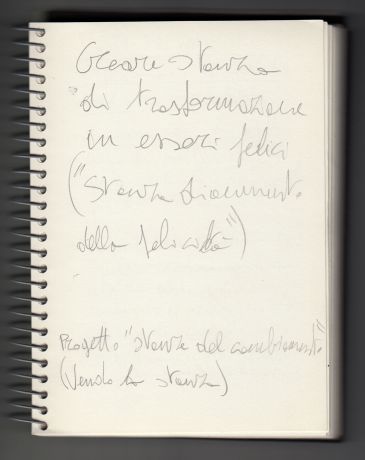 Creare stanza
di trasformazione
in esseri felici
("Stanza
della felicità")
Progetto "stanze del cambiament.."
(Vendo la stanza)